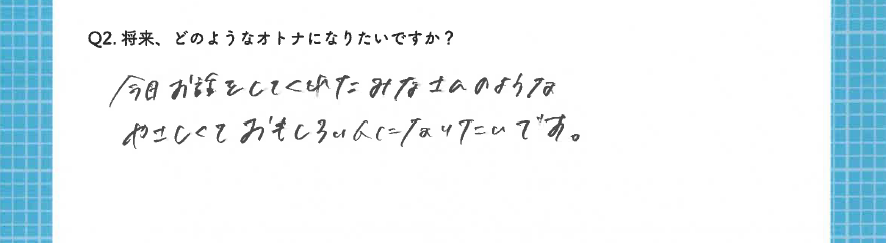 Q2. 将来、どのようなオトナになりたいですか？
今日お話をしてくれたみなさんのような
やさしくておもしろい人になりたいです。